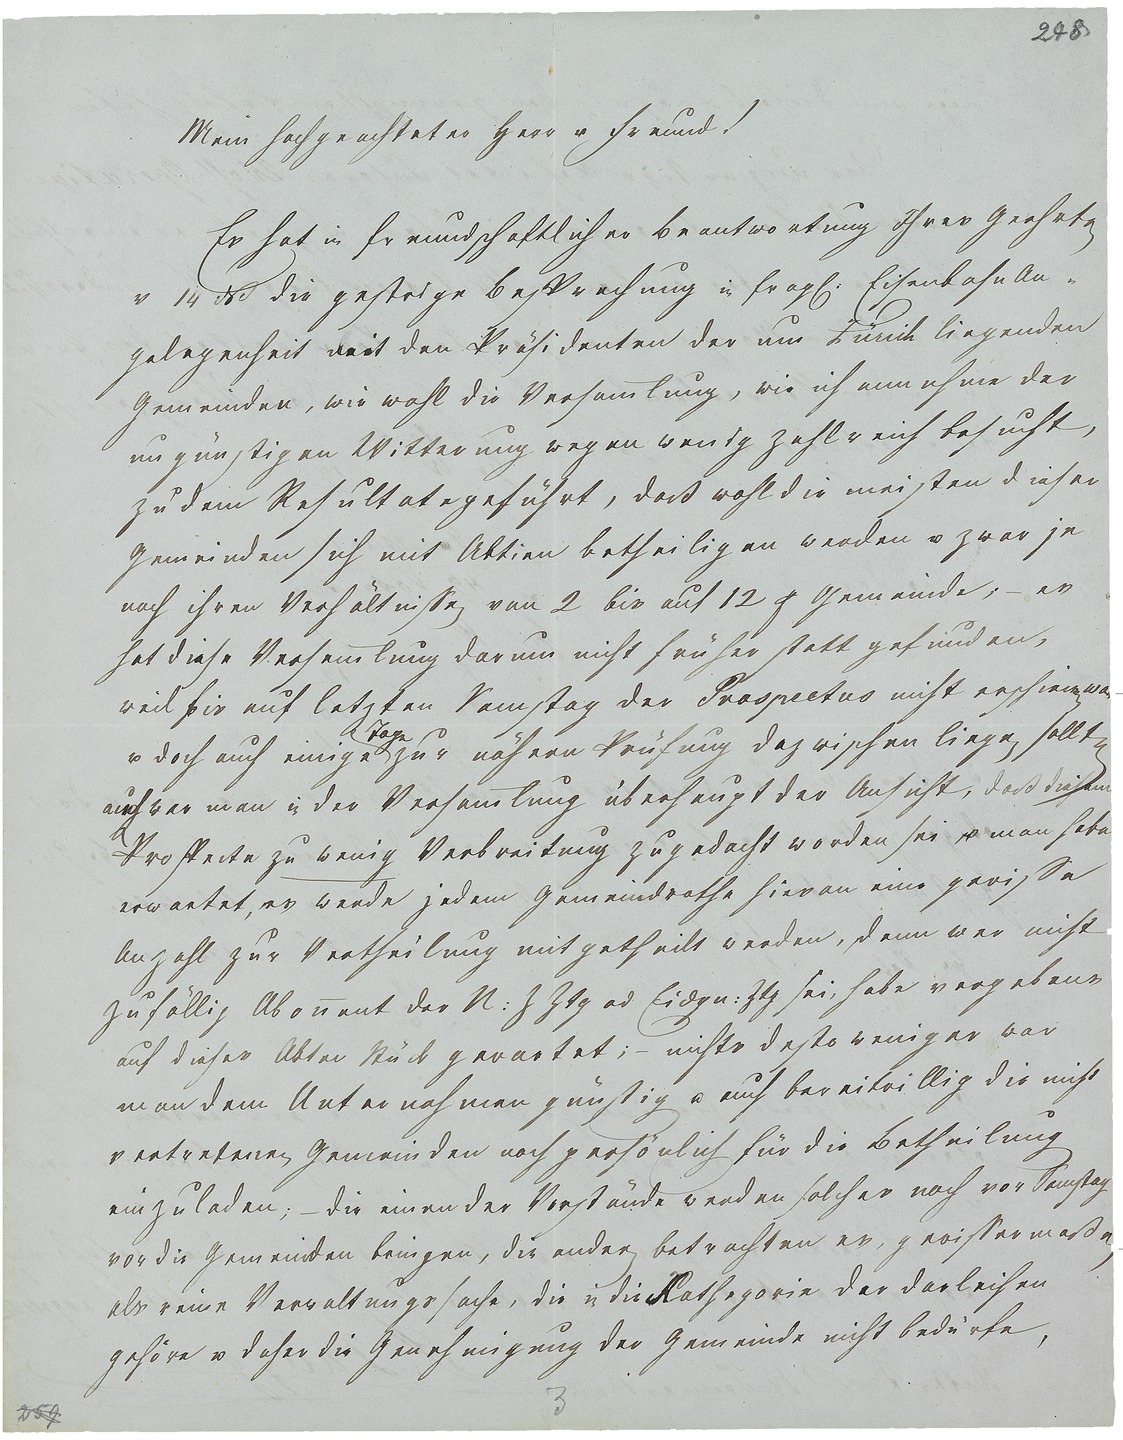 248
Mein hochgeachteter Herr u Freund!
Es hat in freundschaftlicher Beantwortung Ihres Geehrten
v 14 ds die gestrige Besprechung in fragl: Eisenbahn An-
gelegenheit mit den Präsidenten der um Zürich liegenden
Gemeinden, wie wohl die Versamlung, wie ich annehme der
ungünstigen Witterung wegen wenig zahlreich besucht,
zu dem Resultate geführt, daß wohl die meisten dieser
Gemeinden sich mit Aktien betheiligen werden u zwar je
nach ihren Verhältnissen von 2 bis auf 12 p Gemeinde; – es
hat diese Versamlung darum nicht früher statt gefunden,
weil bis auf letzten Samstag der Prospectus nicht erschienen war
u doch auch einige Tage zur nähern Prüfung dazwischen liegen sollten
auch war man in der Versamlung überhaupt der Ansicht, daß diesem
Prospecte zu wenig Verbreitung zugedacht worden sei u man habe
erwartet, es werde jedem Gemeindrathe hievon eine gewisse
Anzahl zur Vertheilung mitgetheilt werden, denn wer nicht
zufällig Abonnent der N: Z Ztg od Eidgn: Ztg sei, habe vergebens
auf dieses Akten Stück gewartet; – nichts desto weniger war
man dem Unternehmen günstig u auch bereitwillig die nicht
vertretenen Gemeinden noch persönlich für die Betheilung
einzuladen; – die einen der Vorstände werden solches noch vor Samstag
vor die Gemeinden bringen, die andern betrachten es, gewissermaßen
als reine Verwaltungssache, die in die Kathegorie der Darleihen
gehöre u daher die Genehmigung der Gemeinde nicht bedürfe,
3
259